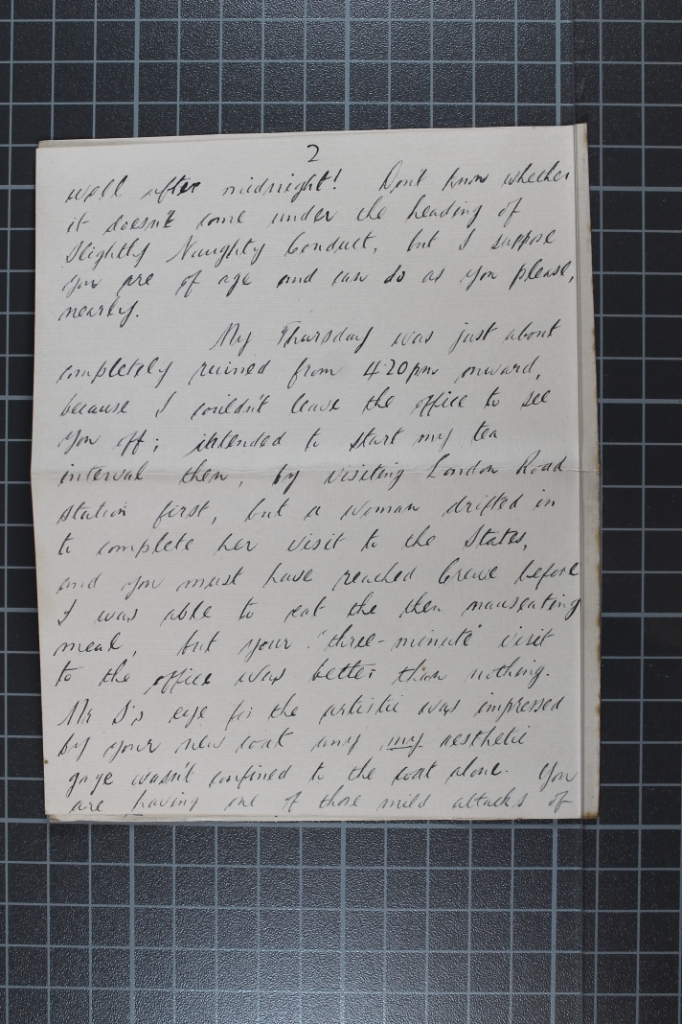 2
well after midnight! Dont know whether
it doesn't come under the heading of
Slightly Naughty Conduct, but I suppose
you are of age and can do as you please,
nearly.
My Thursday was just about
completely ruined from 4.20pm onward,
because I couldn't leave the office to see
you off; intended to start my tea
interval then, by visiting London Road
station first, but a woman drifted in
to complete her visit to the States,
and you must have reached Crewe before
I was able to eat the then nauseating
meal, but your "three-minute" visit
to the office was better than nothing.
Mr S's eye for the artistic was impressed
by your new coat only my aesthetic
gaze wasn't confined to the coat alone. You
are having one of those mild attacks of